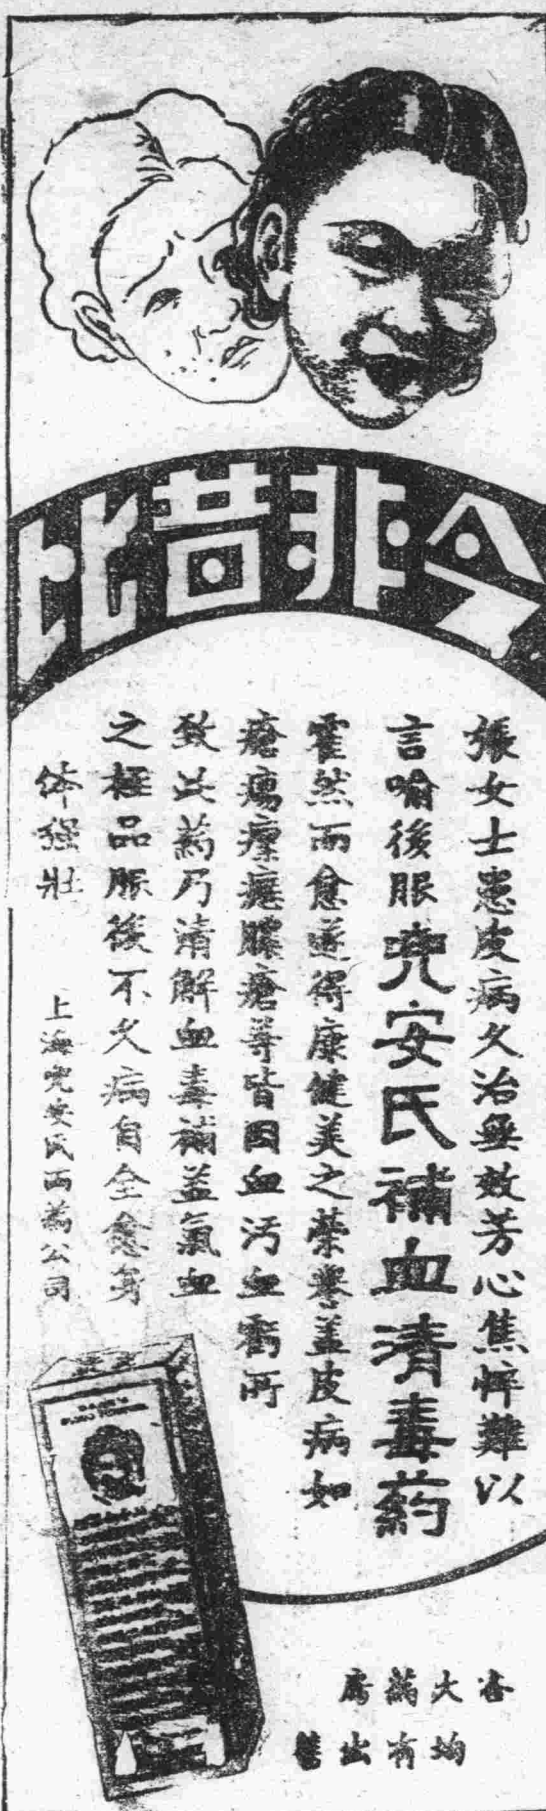 今非昔比
張女士患皮病久治無效芳心焦悴難以
言喻後服兜安氏補血清毒药
霍然而愈遂得康健美之榮譽蓋皮病如
瘡瘍瘰癧臁瘡等皆因血汚血虧所
致此葯乃清解血毒補益氣血
之極品服後不久病自全愈身
体强壯
上海兜安氏西葯公司
各大葯房
均有出售